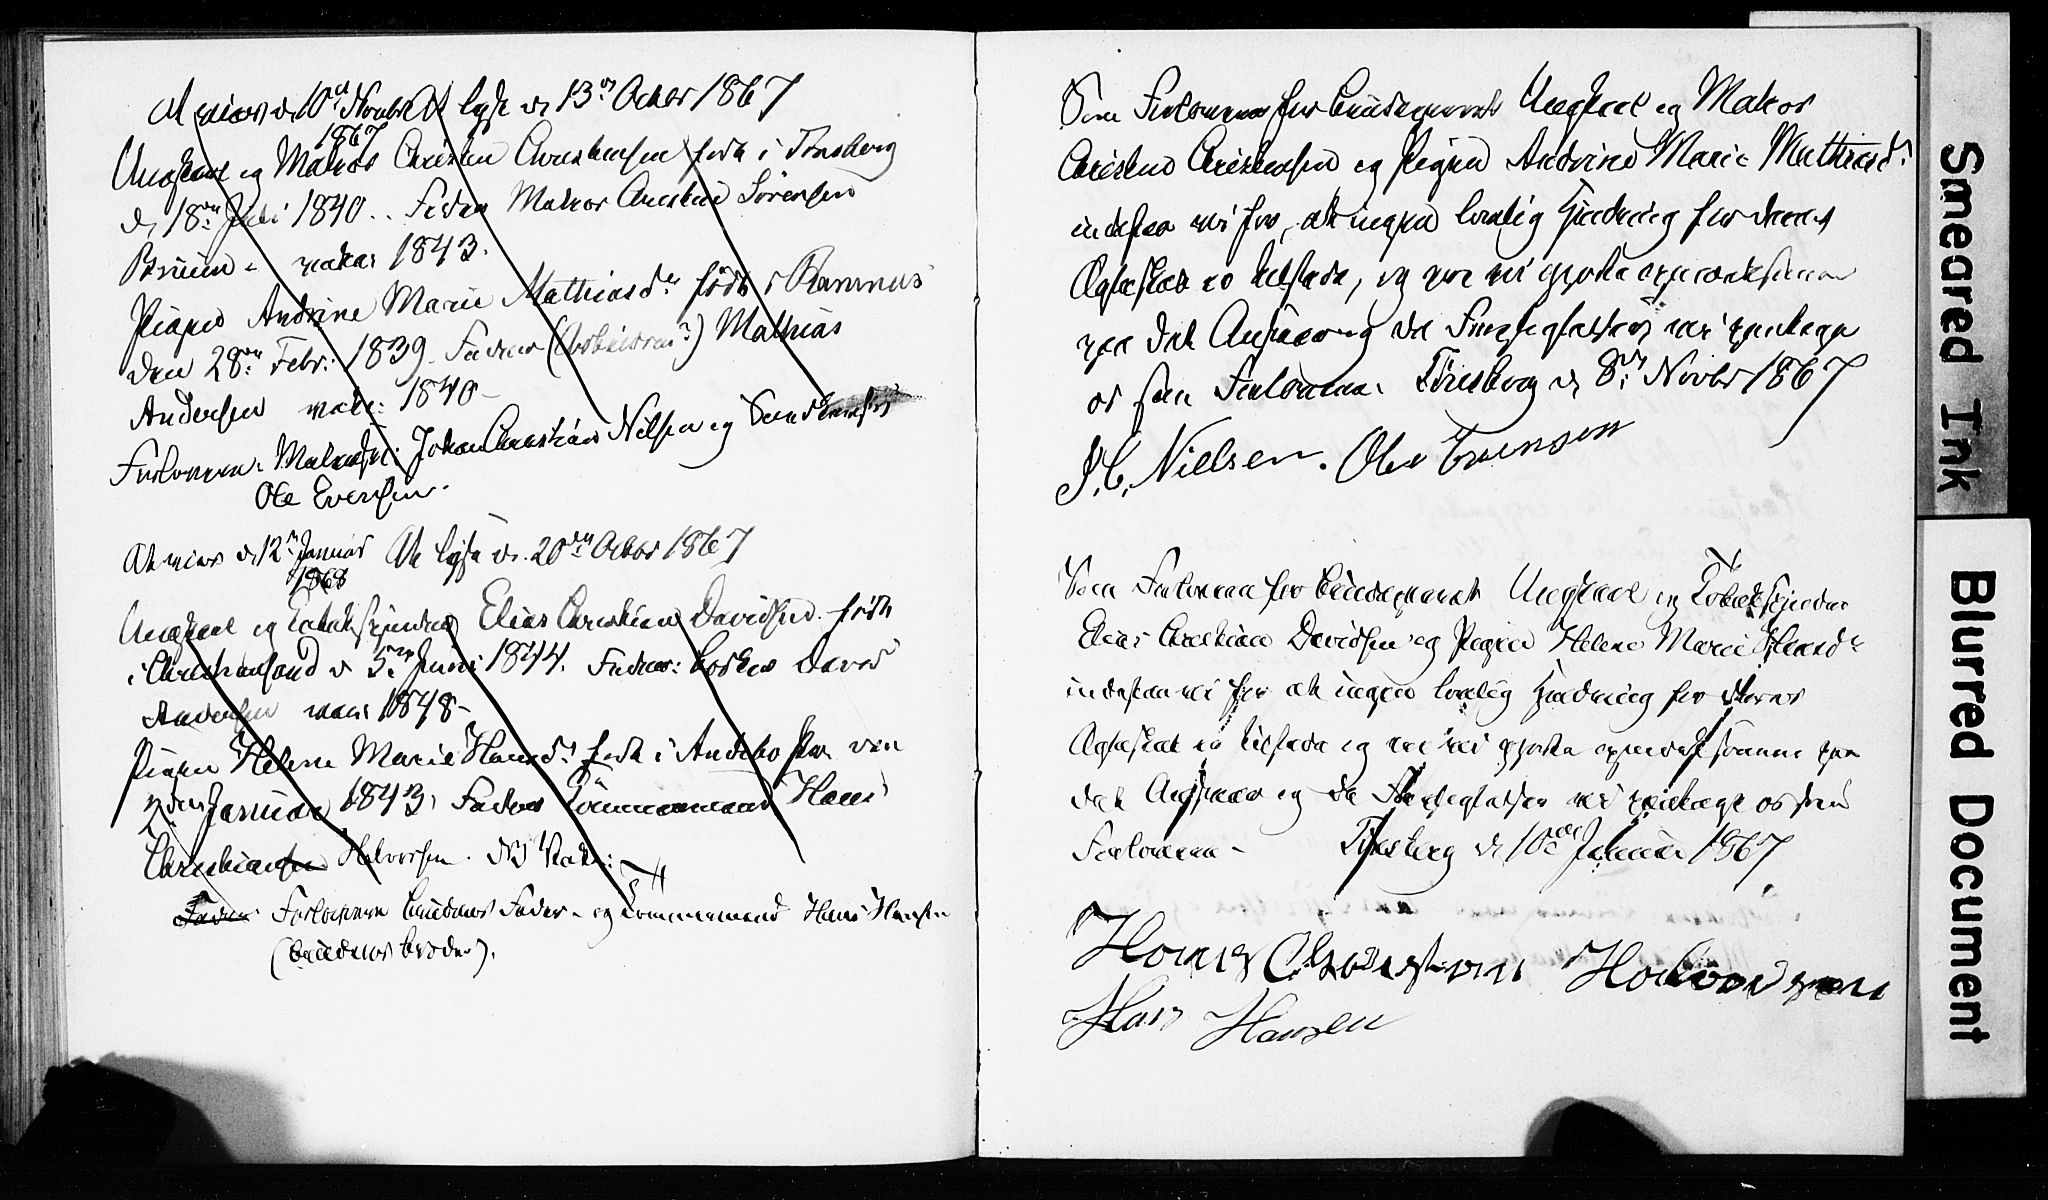 At vies d. 10de Novbr At lyse d. 13de Octbr 1867
1867
Ungkarl og Matros Christen Christensen født i Tønsberg
d. 18de Juli 1840. Fader Matros Christen Sörensen
Bruun - vakc: 1843.
Pigen Andrine Marie Mathiasdr født i Ramnes
den 28de Febr: 1839. Fader (Arbeidsm:) Mathias
Andersen vakc: 1840 -
Forlovere: Matros Johan Christian Nilsen og
Ole Evensen.
At vies d. 12te Januar At lyse d. 20de Octbr 1867
1868
Ungkarl og Tobakspinder Elias Christian Davidsen født
i Christiansand d 5te Juni 1844. Fader: David
Andersen vakc: 1848 -
Pigen Helene Marie Hansdr født i Andebo
2den Januar 1843, Fader Tömmermand Hans
Christiansen Halvorsen. vakc:
Fader Forlovere brudens Fader - og Tömmermand Hans Hansen
(brudens broder).
Som Forlovere for brudeparret Ungkarl og Matros
Christen Christensen og Pigen Andrine Marie Mathiasdr
indestaa vi for, at ingen lovlig Hindring for deres
Ægteskab er tilstede, og ere vi gjorte opmærksomme
paa det Ansvar og de Forpligtelser vi paatage
os som Forlovere. Tönsberg d. 8de Novbr 1867
J. C. Nielsen. Ole Evensen
Som Forlovere for brudeparret Ungkarl og Tobakspinder
Elias Christian Davidsen og Pigen Helene Marie Hansdr
indestaa vi for at ingen lovlig Hindring for deres
Ægteskab er tilstede og ere vi gjorte opmærksomme paa
det Ansvar og de Forpligtelser vi paatage os som
Forlovere - Tönsberg d. 10de Januar 1867
Hans Christian Halvorsen
Hans Hansen
Smeared Ink
Blurred Document